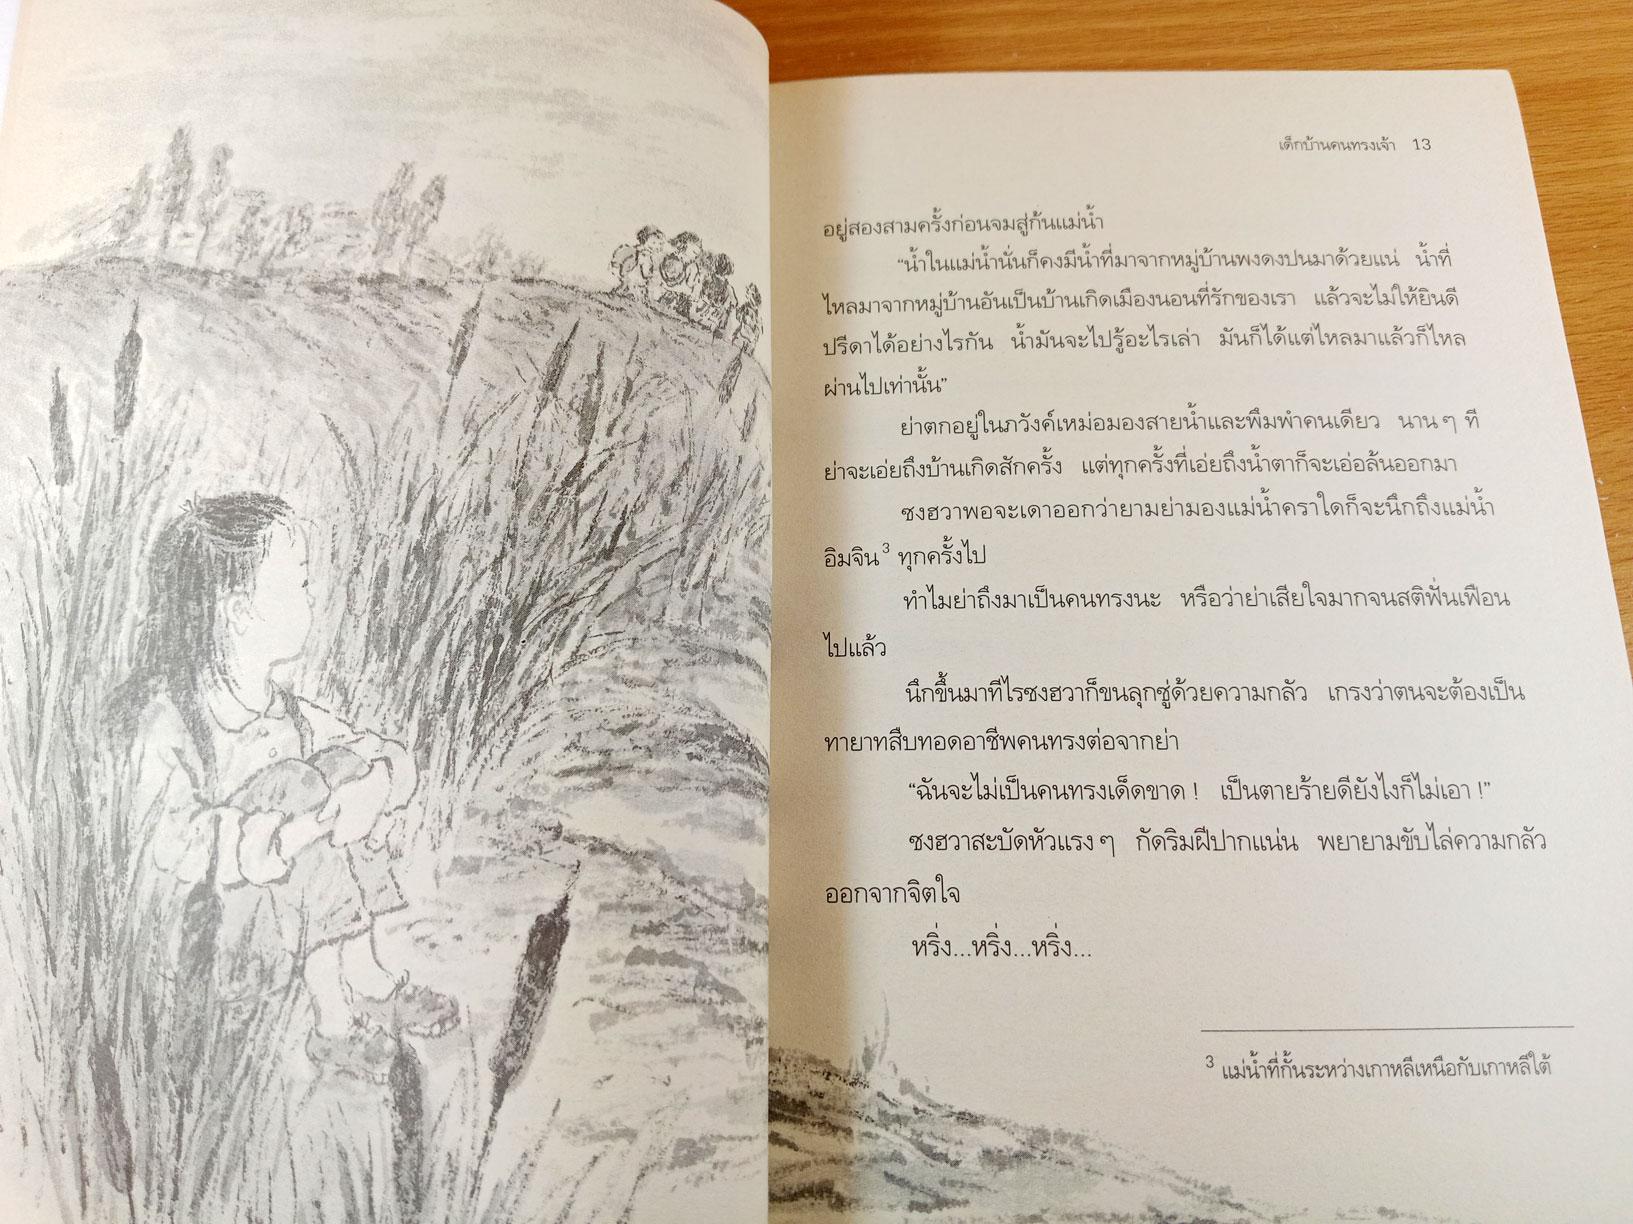 เด็กบ้านคนทรงเจ้า 13
อยู่สองสามครั้งก่อนจมสู่ก้นแม่น้ำ
“น้ำในแม่น้ำนั่นก็คงมีน้ำที่มาจากหมู่บ้านพงดงปนมาด้วยแน่ น้ำที่
ไหลมาจากหมู่บ้านอันเป็นบ้านเกิดเมืองนอนที่รักของเรา แล้วจะไม่ให้ยินดี
ปรีดาได้อย่างไรกัน น้ำมันจะไปรู้อะไรเล่า มันก็ได้แต่ไหลมาแล้วก็ไหล
ผ่านไปเท่านั้น”
ย่าตกอยู่ในภวังค์เหม่อมองสายน้ำและพึมพำคนเดียว นาน ๆ ที
ย่าจะเอ่ยถึงบ้านเกิดสักครั้ง แต่ทุกครั้งที่เอ่ยถึงน้ำตาก็จะเอ่อล้นออกมา
ซงฮวาพอจะเดาออกว่ายามย่ามองแม่น้ำคราใดก็จะนึกถึงแม่น้ำ
อิมจิน³ ทุกครั้งไป
ทำไมย่าถึงมาเป็นคนทรงนะ หรือว่าย่าเสียใจมากจนสติฟั่นเฟือน
ไปแล้ว
นึกขึ้นมาทีไรซงฮวาก็ขนลุกซู่ด้วยความกลัว เกรงว่าตนจะต้องเป็น
ทายาทสืบทอดอาชีพคนทรงต่อจากย่า
“ฉันจะไม่เป็นคนทรงเด็ดขาด ! เป็นตายร้ายดียังไงก็ไม่เอา !”
ซงฮวาสะบัดหัวแรง ๆ กัดริมฝีปากแน่น พยายามขับไล่ความกลัว
ออกจากจิตใจ
หริ่ง...หริ่ง...หริ่ง...
³ แม่น้ำที่กั้นระหว่างเกาหลีเหนือกับเกาหลีใต้